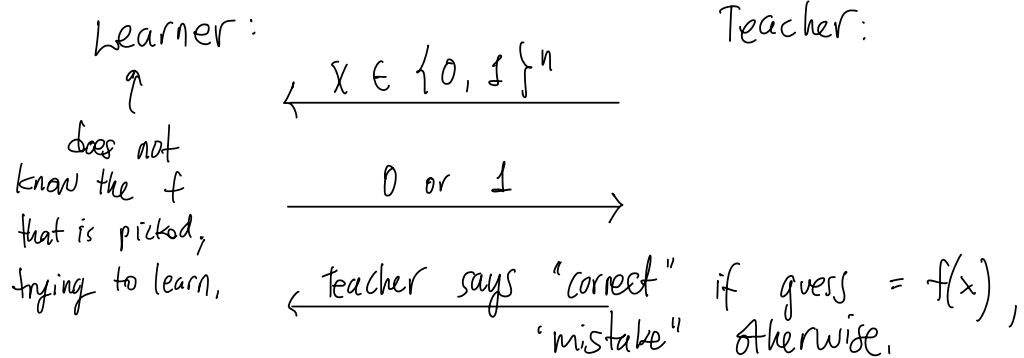 Learner:
Teacher:
x ∈ {0, 1}^n
does not
know the f
that is picked,
trying to learn.
0 or 1
teacher says "correct" if guess = f(x),
"mistake" otherwise.